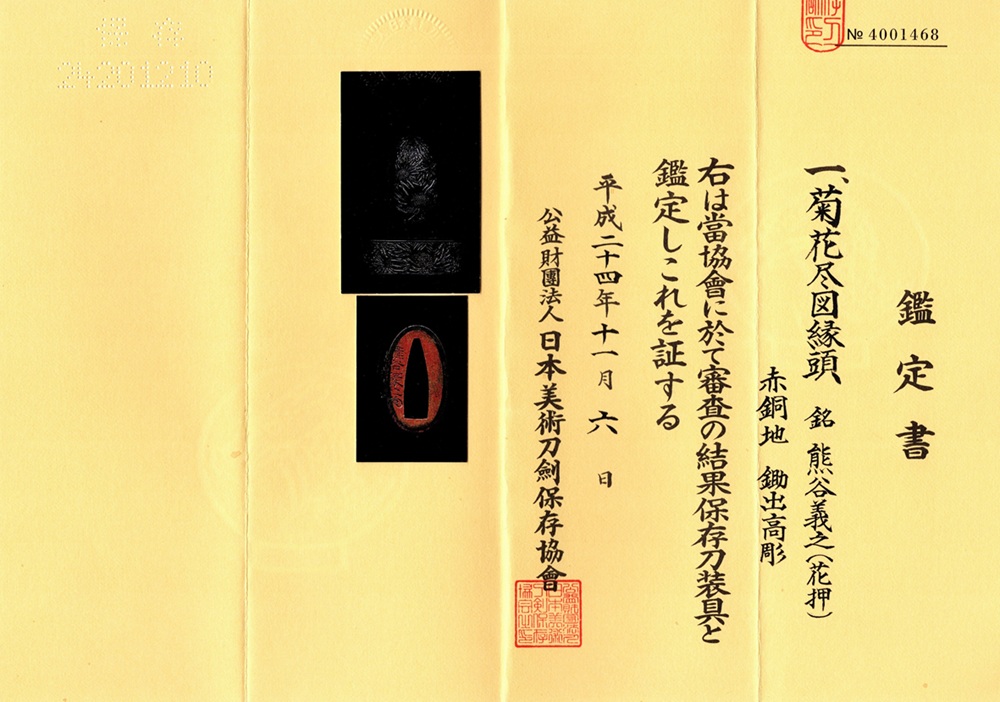 № 4001468
鑑定書
一、菊花尽図縁頭 銘 熊谷義之(花押)
赤銅地 鋤出高彫
右は當協會に於て審査の結果保存刀装具と
鑑定しこれを証する
平成二十四年十一月六日
公益財團法人 日本美術刀劍保存協會
保存
24201210